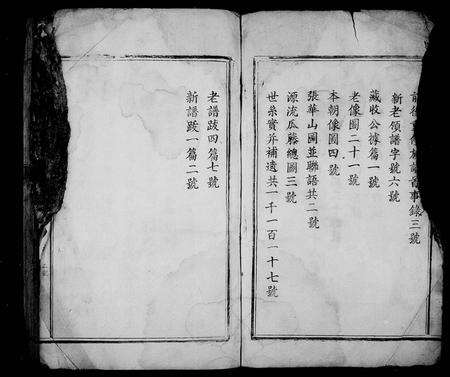 前後重修族譜首事錄三號
新老領譜字號六號
藏收公據篇一號
老像圖二十一號
本朝像圖四號
張華山圖並聯語共二號
源流瓜藤總圖三號
世系實幷補遺共一千一百一十七號
老譜跋四篇七號
新譜跋一篇二號